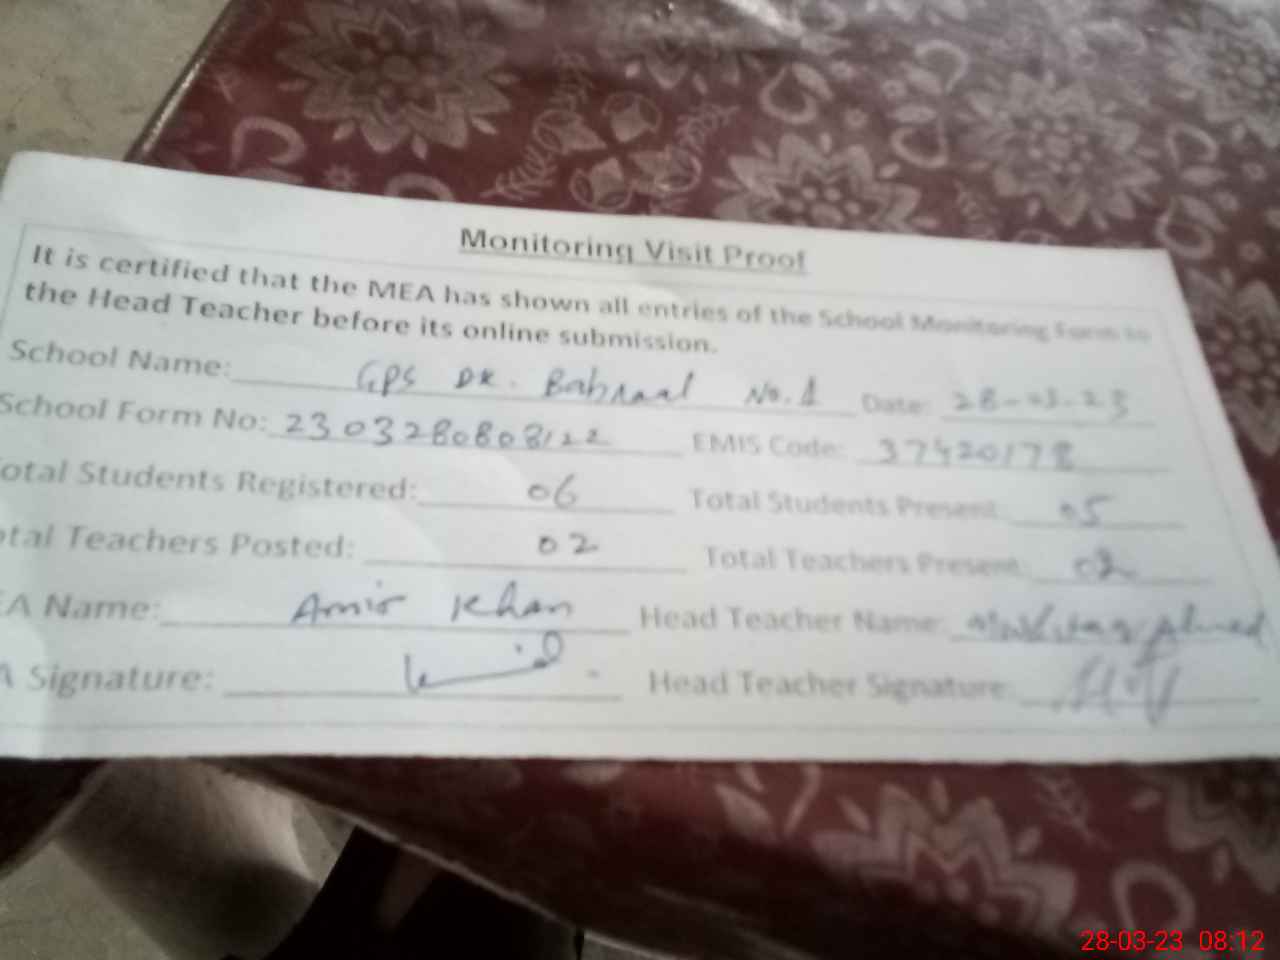 Monitoring Visit Proof
It is certified that the MEA has shown all entries of the School Monitoring Form to
the Head Teacher before its online submission.
School Name: GPS DK. Bahnaal No.1 Date: 28-03-23
School Form No: 2303280808122 EMIS Code: 37420178
otal Students Registered: 06 Total Students Present 05
otal Teachers Posted: 02 Total Teachers Present 02
EA Name: Amir Khan Head Teacher Name: Ahmed
A Signature: Head Teacher Signature:
28-03-23 08:12